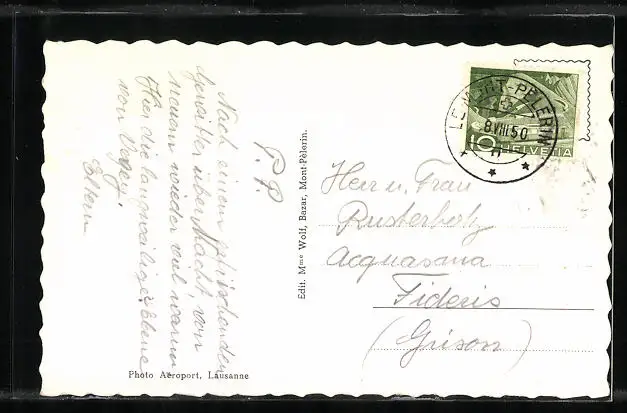 P. P.
Nach einem erfrischenden
Gewitter über Nacht, von
neuem wieder viel warm
Hier die langweilige Ebene
von Vevey!
Eltern
Photo Aéroport, Lausanne
Edit. Mme Wolf, Bazar, Mont-Pèlerin.
LE MONT-PÈLERIN
8 VIII 50
10 HELVETIA
Herr u. Frau
Rusterholz
Acquasana
Fideris
(Grison)